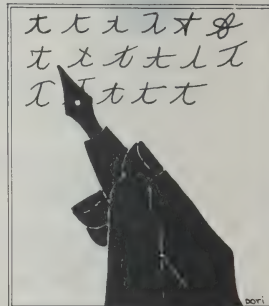 t t t t t t
t t t t t t
t t t t t
Dori